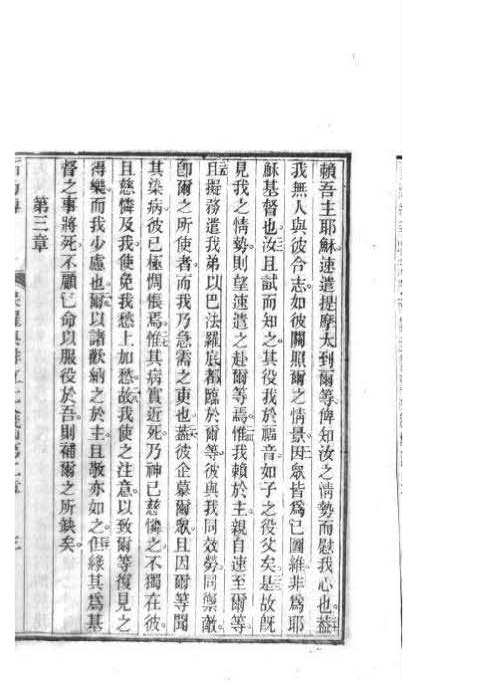 賴吾主耶穌速遣提摩太到爾等俾知汝之情勢而慰我心也蓋
我無人與彼合志如彼關照爾之情景因眾皆爲己圖維非爲耶
穌基督也汝且試而知之其役我於福音如子之役父矣是故旣
見我之情勢則望速遣之赴爾等焉惟我賴於主親自速至爾等
且擬務遣我弟以巴法羅底都臨於爾等彼與我同效勞同禦敵
卽爾之所使者而我乃急需之吏也蓋彼企慕爾眾且因爾等聞
其染病彼已極惆悵焉惟其病實近死乃神已慈憐之不獨在彼
且慈憐及我使免我愁上加愁故我使之注意以致爾等復見之
得樂而我少慮也爾以諸歡納之於主且敬亦如之但緣其爲基
督之事將死不顧己命以服役於吾則補爾之所缺矣
第三章